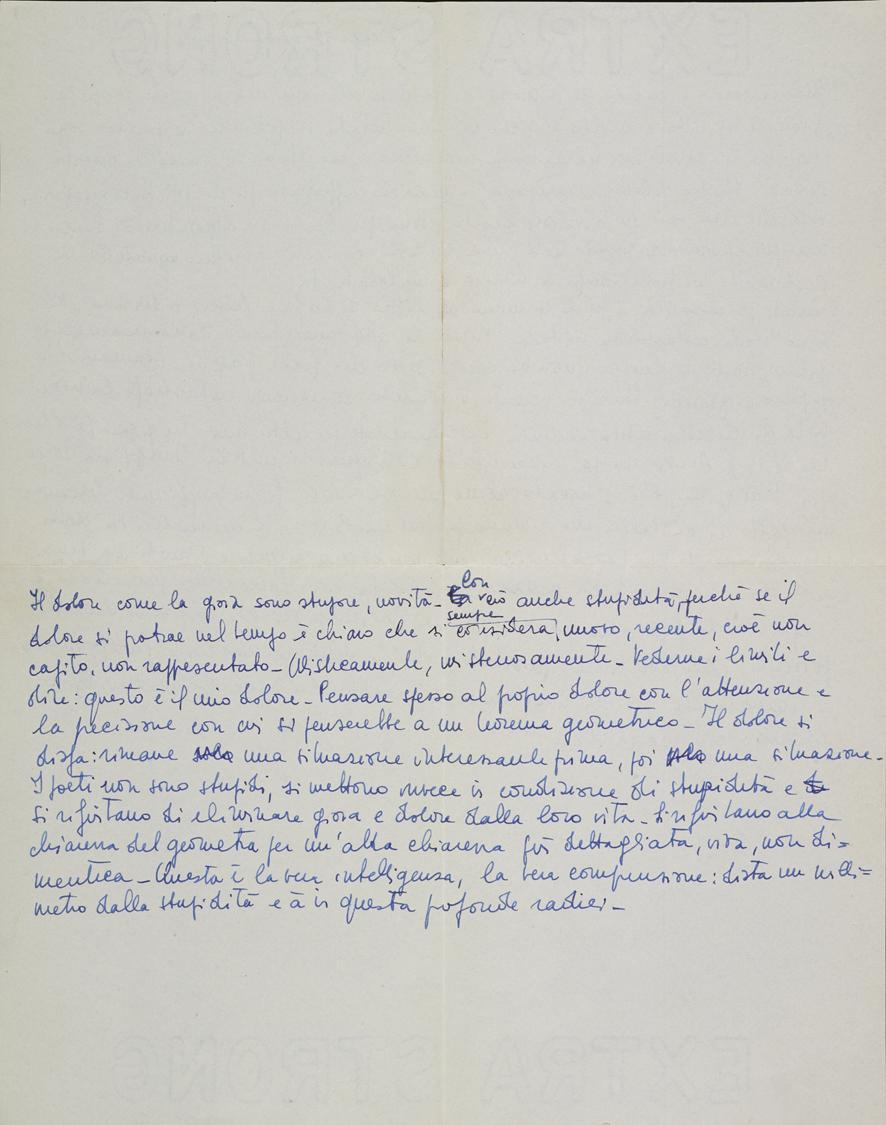 EXTRA STRONG
Il dolore come la gioia sono stupore, novità - Con ciò anche stupidità, perché se il
dolore si protrae nel tempo è chiaro che si considera sempre, nuovo, recente, cioè non
capito, non rappresentato - Misticamente, misteriosamente - Vederne i limiti e
dire: questo è il mio dolore - Pensare spesso al proprio dolore con l'attenzione e
la precisione con cui si penserebbe a un teorema geometrico - Il dolore si
disfa: rimane una situazione interessante prima, poi una situazione -
I poeti non sono stupidi, si mettono invece in condizione di stupidità e
si rifiutano di eliminare gioia e dolore dalla loro vita - Si rifiutano alla
chiarezza del geometra per un'altra chiarezza più dettagliata, viva, non di=
mentica - Questa è la vera intelligenza, la vera comprensione: dista un milli=
metro dalla stupidità e à in questa profonde radici -
EXTRA STRONG